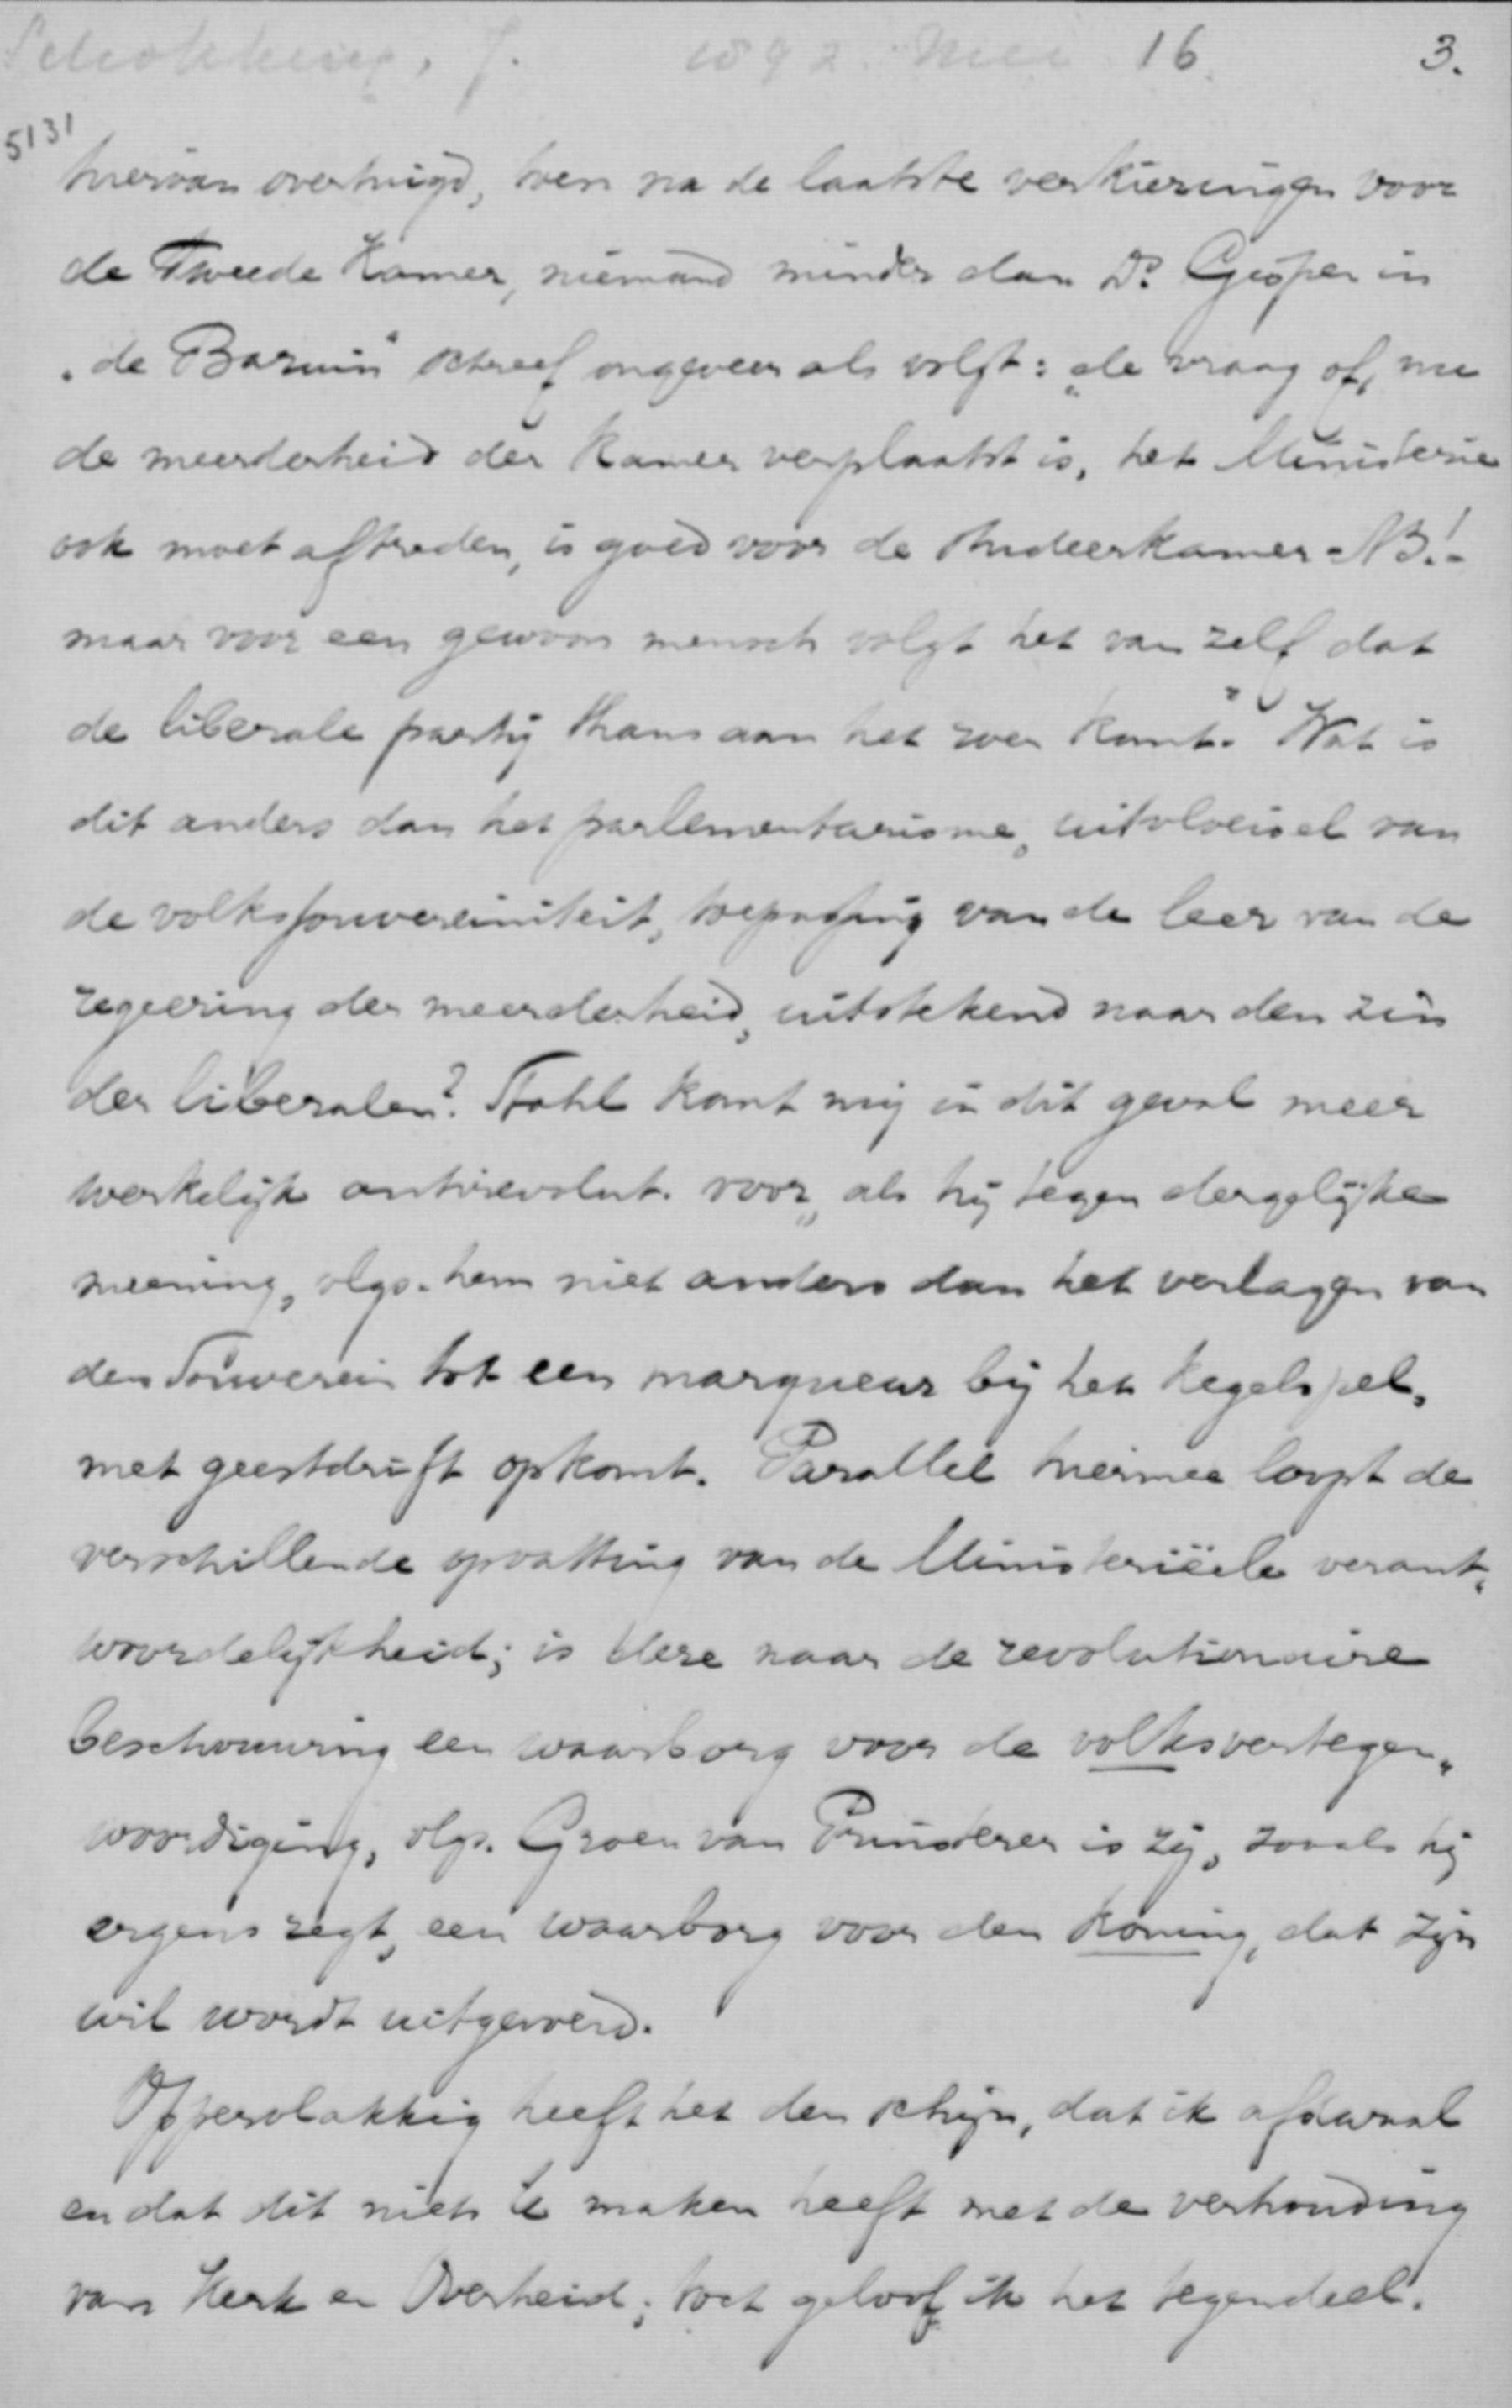 Schokking, J. 1892. Mei 16. 3.
5131
hiervan overtuigd, toen na de laatste verkiezingen voor
de Tweede Kamer, niemand minder dan Dr. Gispen in
„de Bazuin" schreef ongeveer als volgt: „de vraag of, nu
de meerderheid der Kamer verplaatst is, het Ministerie
ook moet aftreden, is goed voor de studeerkamer - NB.! -
maar voor een gewoon mensch volgt het van zelf dat
de liberale partij thans aan het roer komt." Wat is
dit anders dan het parlementarisme, uitvloeisel van
de volkssouvereiniteit, toepassing van de leer van de
regeering der meerderheid, uitstekend naar den zin
der liberalen? Stahl komt mij in dit geval meer
werkelijk antirevolut. voor, als hij tegen dergelijke
meening, vlgs. hem niet anders dan het verlagen van
den Souverein tot een marqueur bij het kegelspel,
met geestdrift opkomt. Parallel hiermee loopt de
verschillende opvatting van de Ministeriëele verant„
woordelijkheid; is deze naar de revolutionaire
beschouwing een waarborg voor de volksvertegen„
woordiging, vlgs. Groen van Prinsterer is zij, zooals hij
ergens zegt, een waarborg voor den Koning, dat zijn
wil wordt uitgevoerd.
Oppervlakkig heeft het den schijn, dat ik afdwaal
en dat dit niets te maken heeft met de verhouding
van Kerk en Overheid; toch geloof ik het tegendeel.